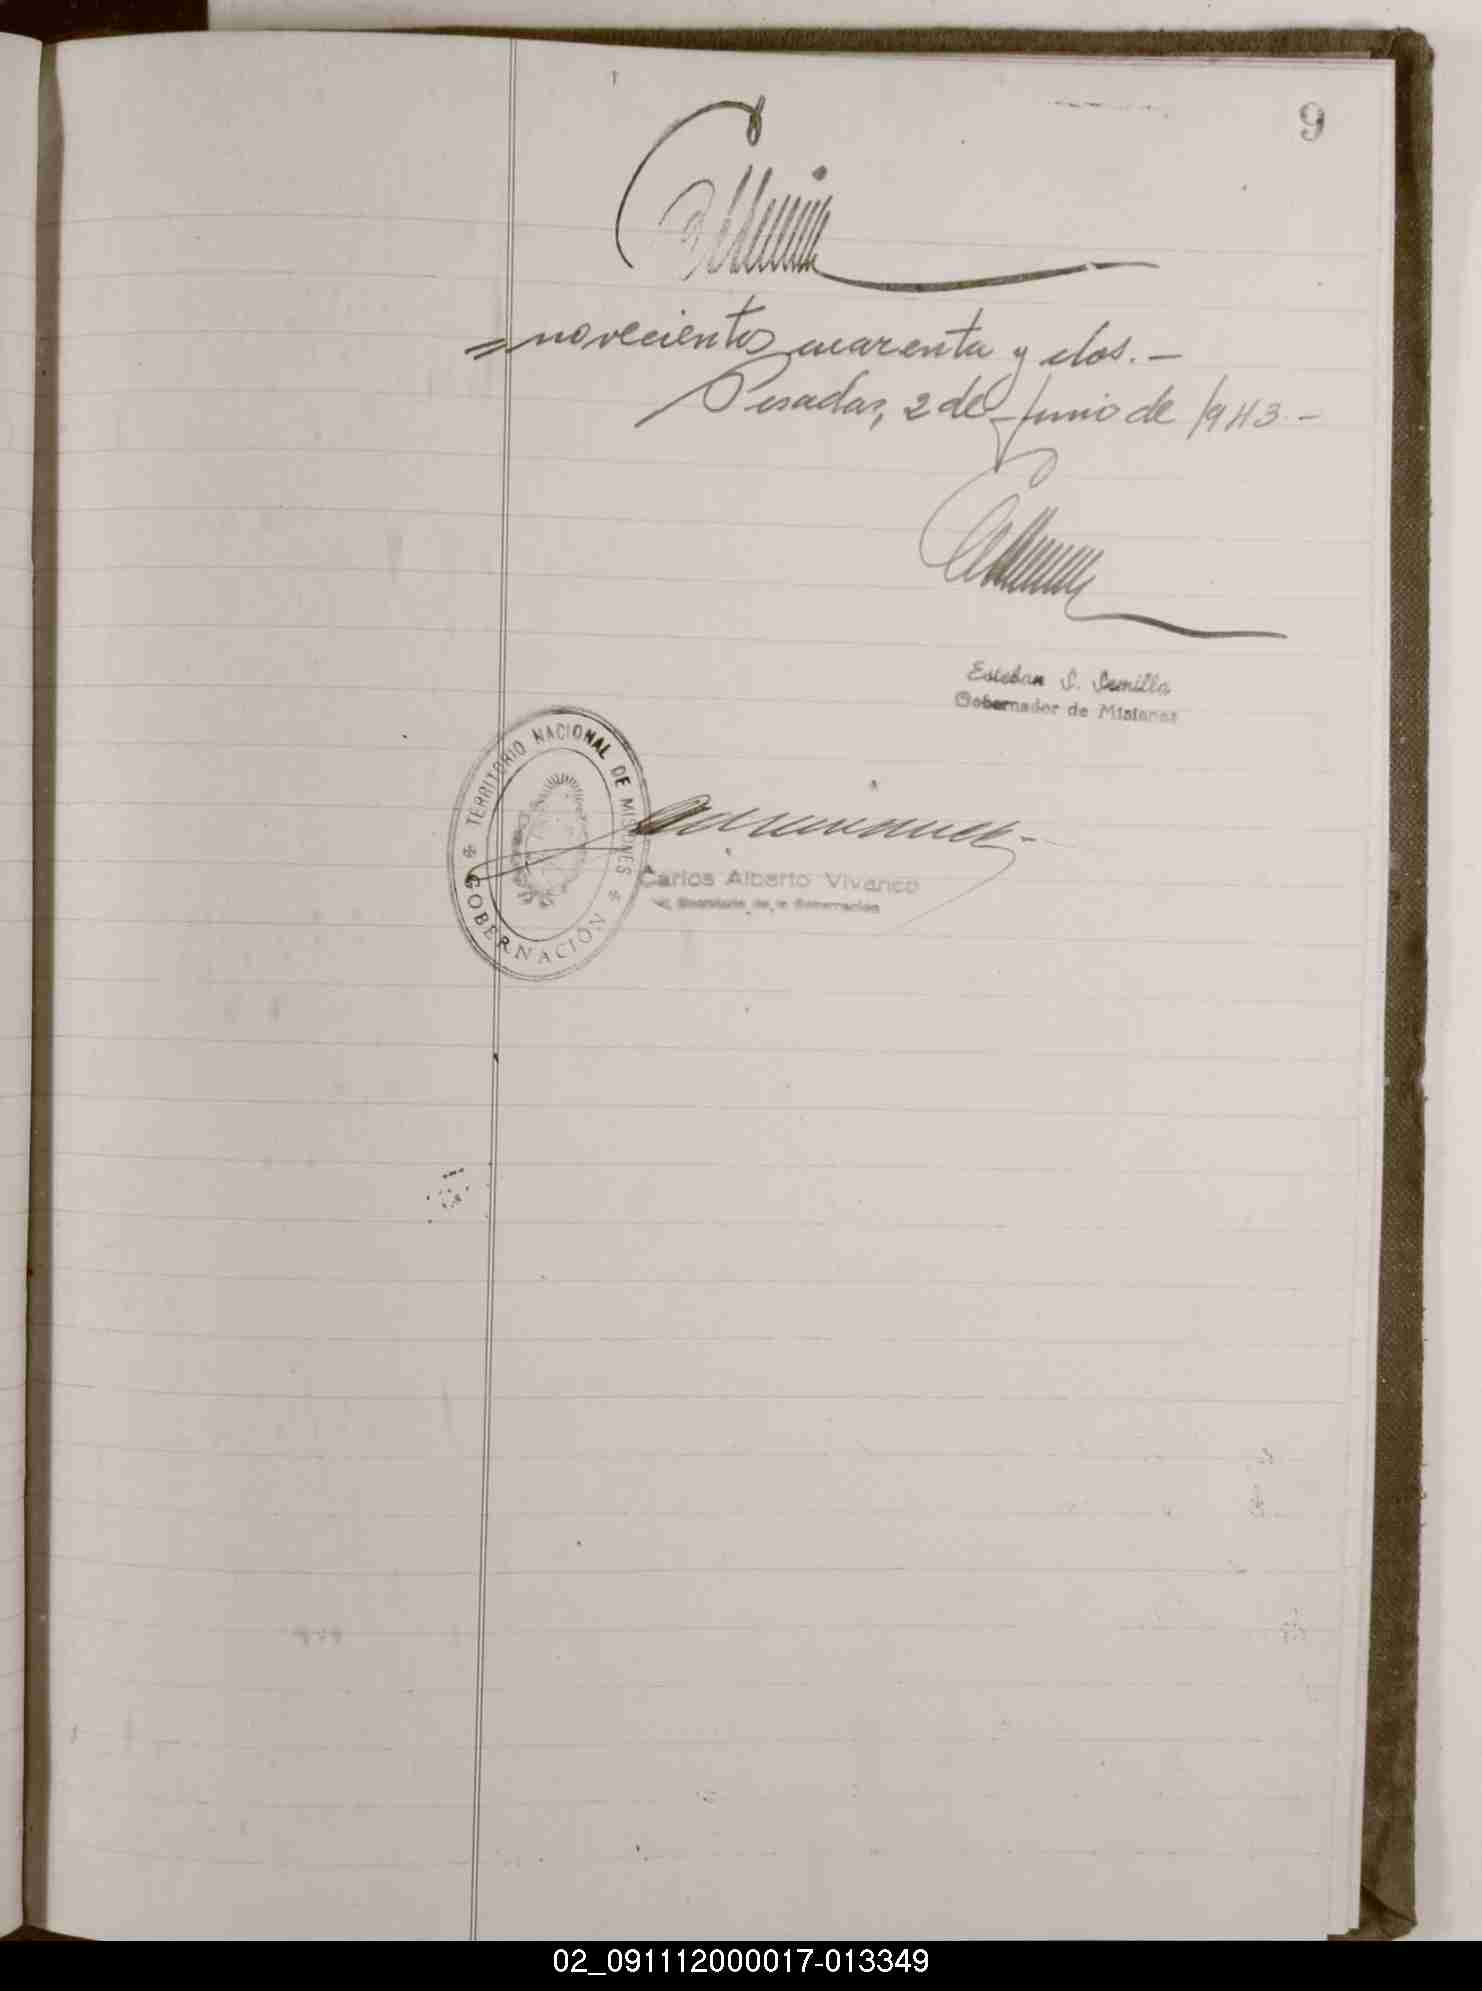 9
= novecientos cuarenta y dos. —
Posadas, 2 de Junio de 1943. —
Esteban S. Semilla
Gobernador de Misiones
TERRITORIO NACIONAL DE MISIONES
GOBERNACIÓN
Carlos Alberto Vivanco
Secretario de la Gobernación
02_091112000017-013349